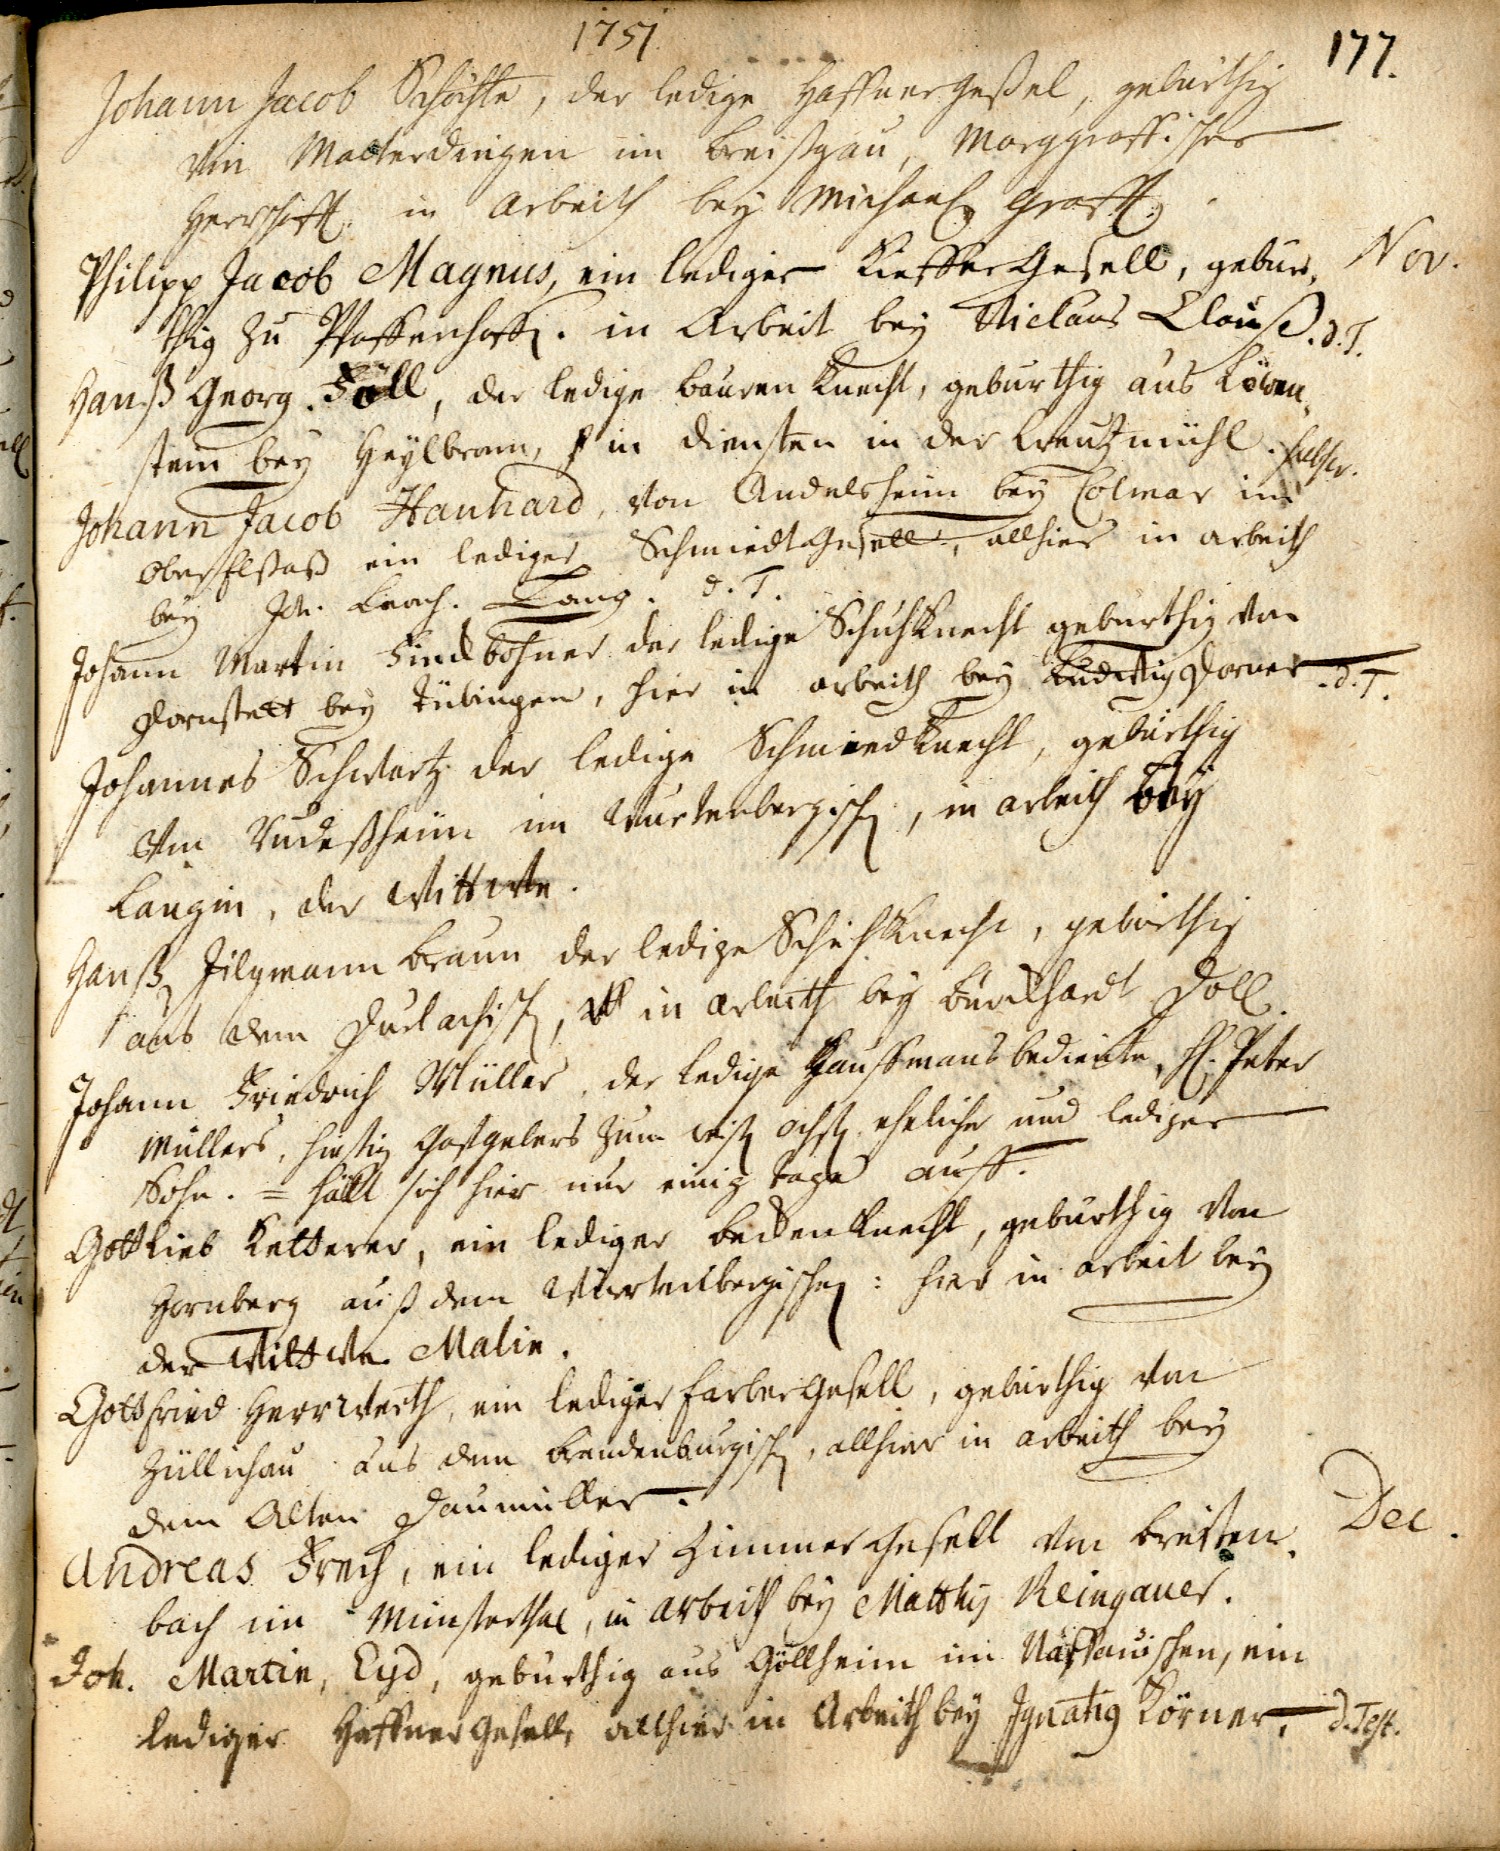 1751.
177.
Johann Jacob Schöchle, der ledige Haffner Gesel, gebürthig
von Malterdingen im Breißgau, Marggräffischer
Herrschafft. in Arbeith bey Michael Graff.
Philipp Jacob Magnus, ein lediger Kieffer Gesell, gebür- Nov.
thig zu Pfaffenhoff. in Arbeit bey Niclaus Clauß. d. T.
Hanß Georg Föll, der ledige Bauren Knecht, geburthig aus Löwen-
stein bey Heylbronn, in diensten in der Creutzmühl.
Johann Jacob Hanhard, von Andelsheim bey Colmar im
Ober Elsaß ein lediger Schmiedt Gesell, allhier in arbeith
bey Joh. Lang. d. T.
Johann Martin Findbohner der ledige Schuhknecht geburthig von
Dornstett bey Tübingen, hier in arbeith bey Ludwig Dorner d. T.
Johannes Schwartz der ledige Schmied Knecht, gebürthig
von im Würtenbergisch, in arbeith bey
Langin, der Wittwe.
Hanß Jilgmann Braun der ledige Schuh Knecht, gebürthig
aus dem Durlachisch, in arbeith bey Burckhardt Doll.
Johann Friedrich Müller, der ledige Kauffmansbediente, H. Peter
Müllers, hiesig Gastgebers zum weiß ochs eheliche und lediger
Sohn. = hällt sich hier nur einig tage auff.
Gottlieb Ketterer, ein lediger Becken Knecht, geburthig von
Hornberg auß dem Würtenbergischen: hier in arbeit bey
der Wittwe Malin.
Gottfried Herrwerth, ein lediger Farber Gesell, gebürthig von
Züllichau aus dem Brandenburgisch, allhier in arbeith bey
dem Alten Daumüller.
Andreas Frech, ein lediger Zimmer Gesell von Breiten- Dec.
bach im Münsterthal, in Arbeith bey Matthis Reingauer.
Joh. Martin, Eyd, geburthig aus Göllheim im Naßauischen, ein
lediger Haffner Gesell, allhier in Arbeith bey Ignatius Körner. d. Test.